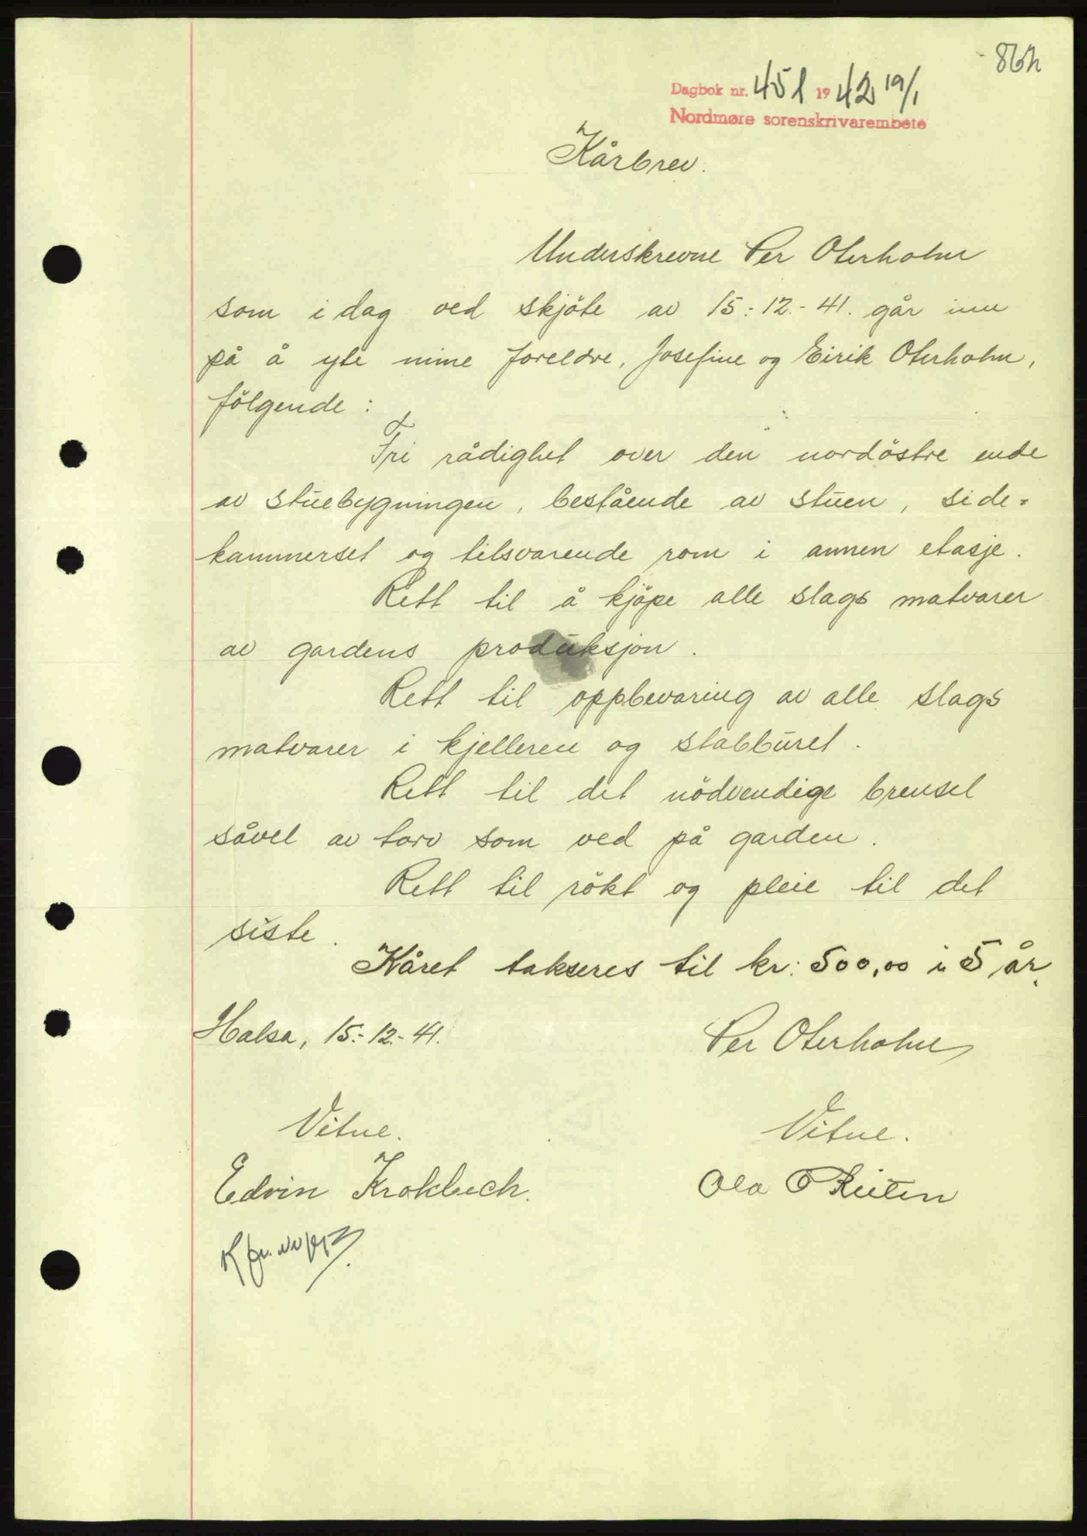 Dagbok nr. 451 1942 19/1
Nordmøre sorenskrivarembete
Kårbrev.
Underskrevne Per Oterholm
som i dag ved skjöte av 15.-12.-41. går inn
på å yte mine foreldre, Josefine og Eirik Oterholm,
fölgende :
Fri rådighet over den nordöstre ende
av stuebygningen, bestående av stuen, side-
kammerset og tilsvarende rom i annen etasje.
Rett til å kjöpe alle slags matvarer
av gardens produksjon.
Rett til oppbevaring av alle slags
matvarer i kjelleren og stabburet.
Rett til det nödvendige brensel
såvel av torv som ved på garden.
Rett til rökt og pleie til det
siste.
Kåret takseres til kr: 500,00 i 5 år.
Halsa, 15.-12.-41.
Per Oterholm
Vitne.
Vitne.
Edvin
Ola O